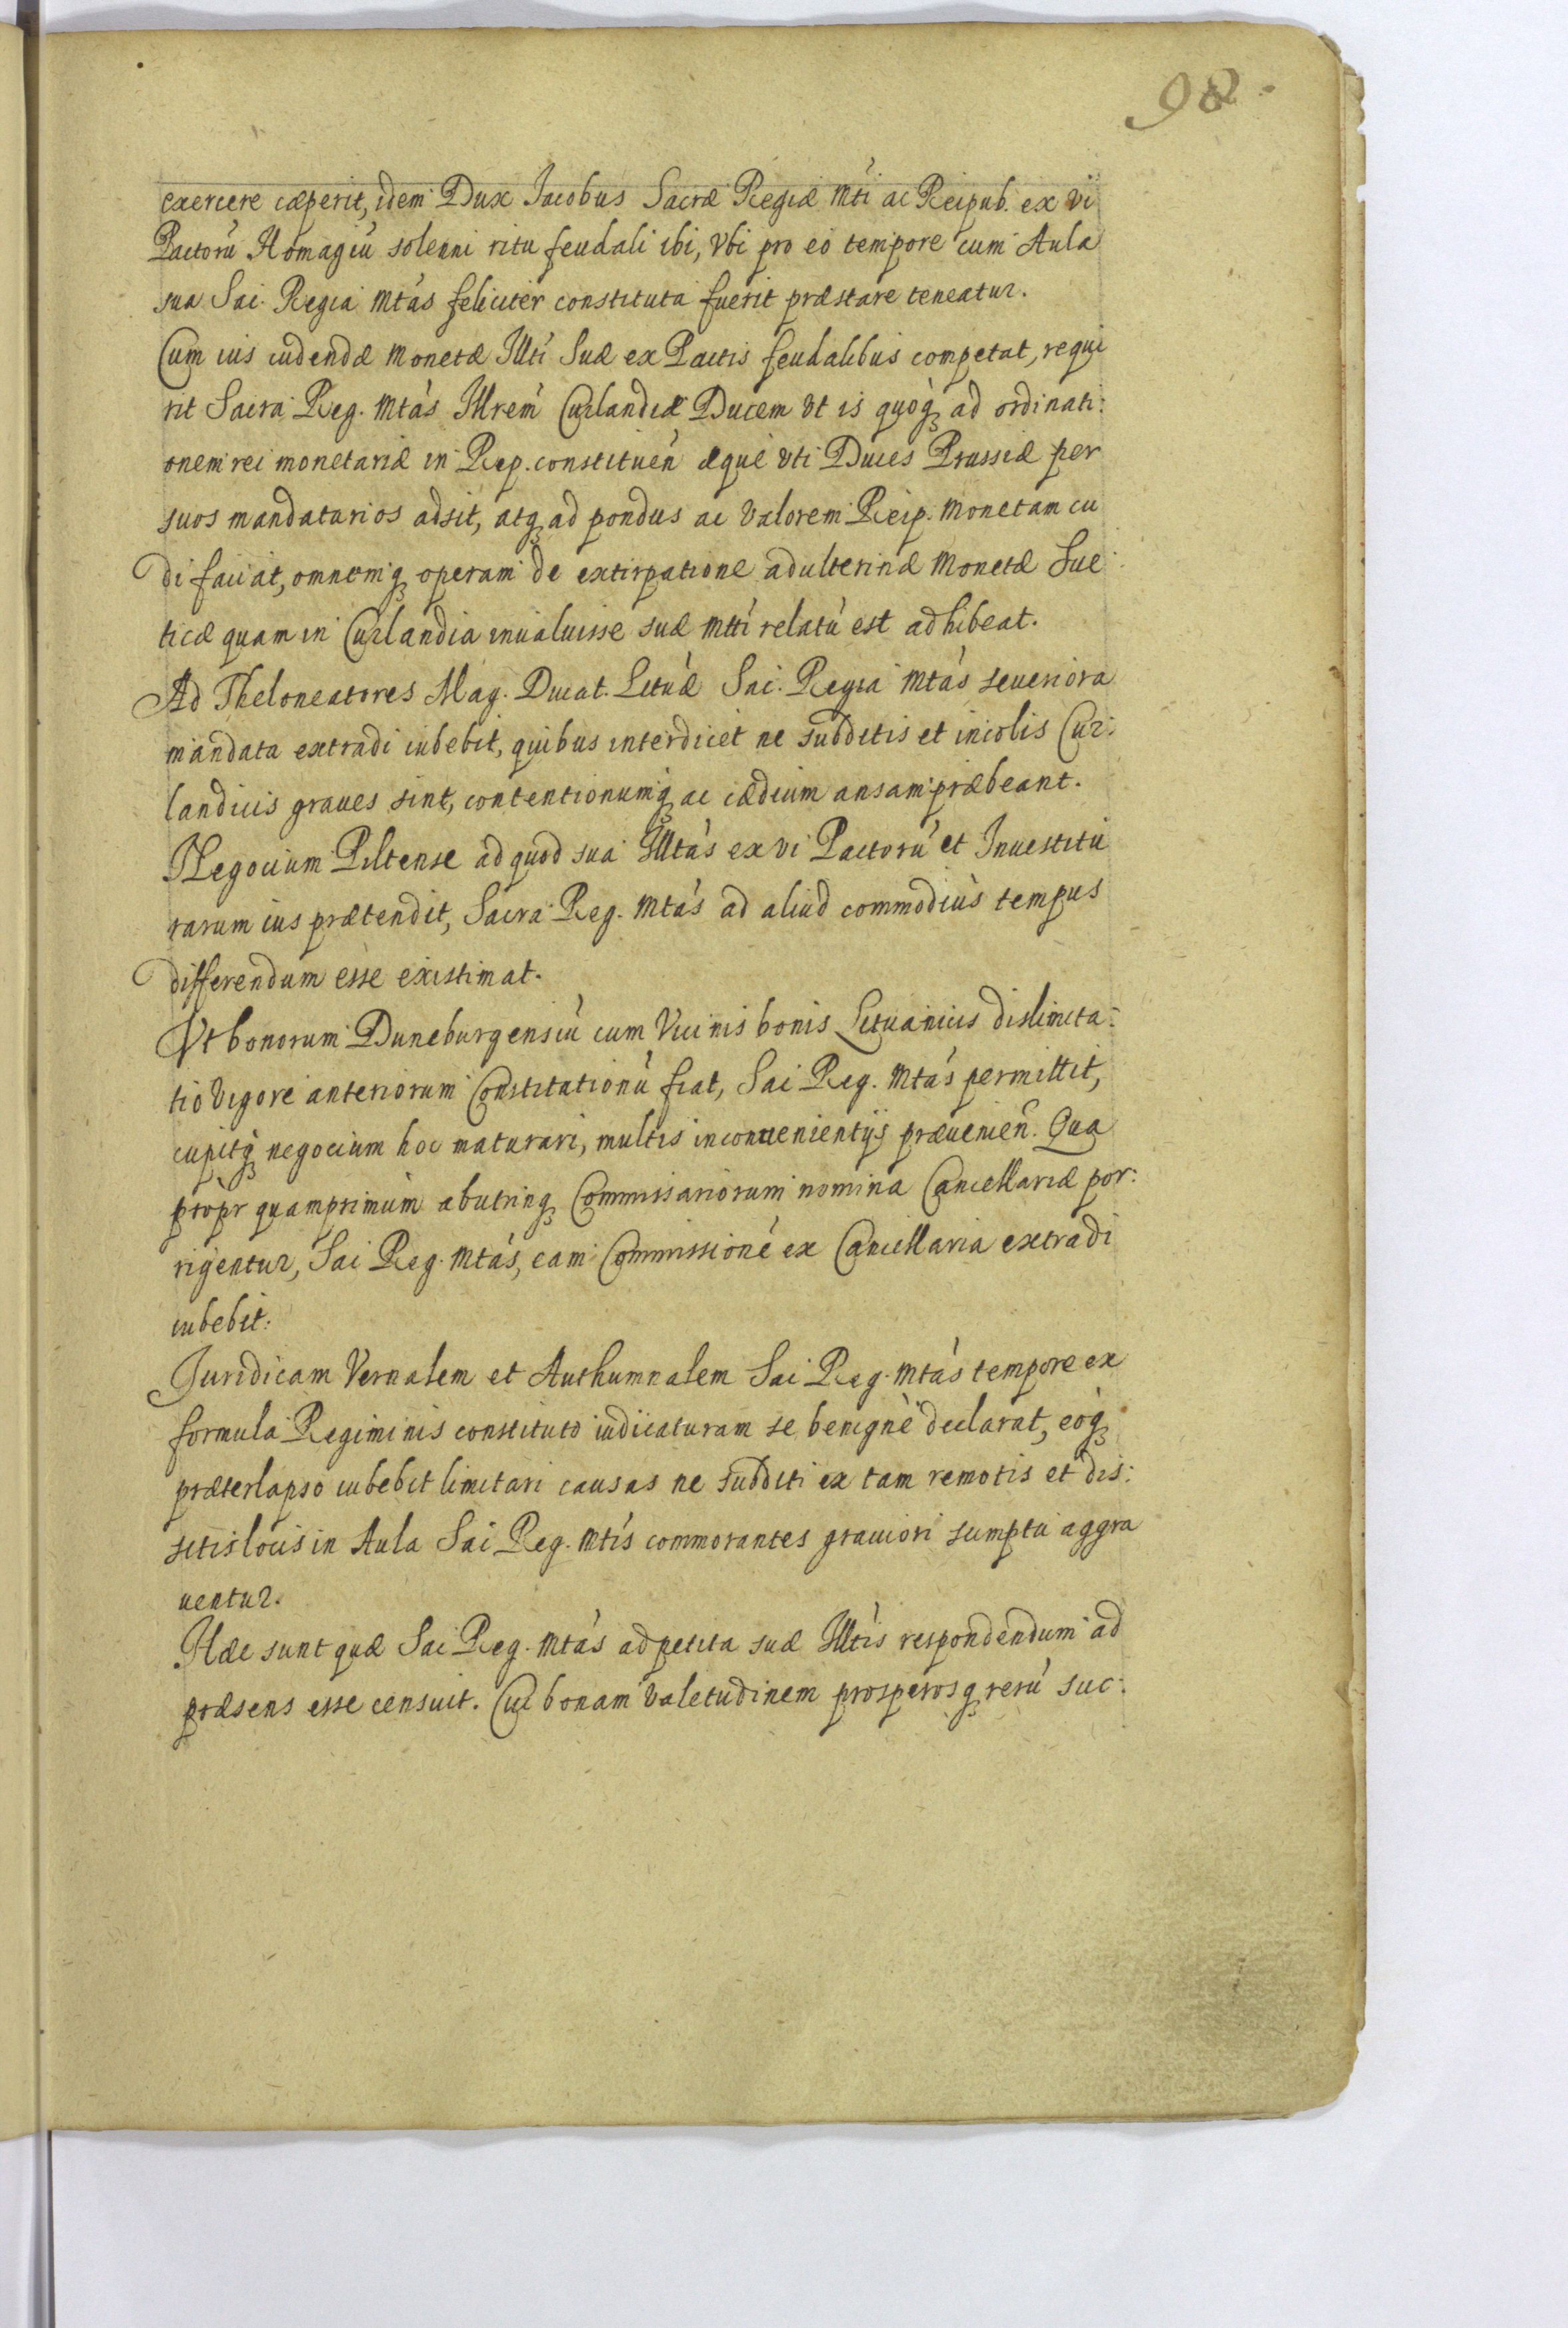 98.
exercere cæperit, idem Dux Jacobus Sacræ Regiæ Mti ac Reipub. ex vi
Pactorù Homagiù solenni ritu feudali ibi, Vbi pro eo tempore cum Aula
sua Sac. Regia Mtàs feliciter constituta fuerit præstare teneatur.
Cum ius cudendæ Monetæ Illtì Suæ ex Pactis feudalibus competat, requi
rit Sacra Reg. Mtàs Illrem̀ Curlandiæ Ducem Vt is quoq̧ ad ordinati:
onem rei monetariæ in Rep. constituen̄ æquè Vti Duces Prussiæ per
suos mandatarios adsit, atq̧ ad pondus ac Valorem Reip. Monetam cu
di faciat, omnemq̧ operam de extirpatione adulterinæ Monetæ Sue
ticæ quam in Curlandia inualuisse suæ Mttì relatù est adhibeat.
Ad Theloneatores Mag. Ducat. Lituæ̀ Sac. Regia Mtàs seueriora
mandata extradi iubebit, quibus interdicet ne subditis et incolis Cur:
landicis graues sint, contentionumq̧ ac cædium ansam præbeant.
Negocium Piltense ad quod sua Illtàs ex vi Pactorù et Inuestitu
rarum ius prætendit, Sacra Reg. Mtàs ad aliud commodiùs tempus
differendum esse existimat.
Vt bonorum Duneburgensiù cum Vicinis bonis Lituanicis dislimita:
tio vigore anteriorum Constitutionù fiat, Sac Reg. Mtàs permittit,
cupitq̧ negocium hoc maturari, multis inconuenientijs præuenien̄. Qua
propr̀ quamprimùm abutrinq̧ Commissariorum nomina Cancellariæ por:
rigentur, Sac Reg. Mtàs, eam Commissionè ex Cancellaria extradi
iubebit:
Juridicam Vernalem et Authumnalem Sac Reg. Mtàs tempore ex
formula Regiminis constituto iudicaturam se benignè declarat, eoq̧
præterlapso iubebit limitari causas ne subditi ex tam remotis et dis:
sitis locis in Aula Sac Reg. Mtìs commorantes grauiori sumptu aggra
uentur.
Hæc sunt quæ Sac Reg. Mtàs ad petita suæ Illtìs respondendum ad
præsens esse censuit. Cui bonam Valetudinem prosperosq̧ rerù suc: